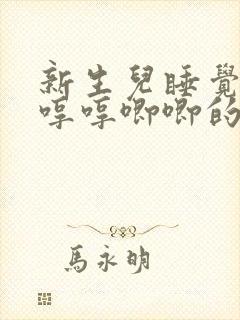 新生兒睡覺
哼哼唧唧的
馬永明